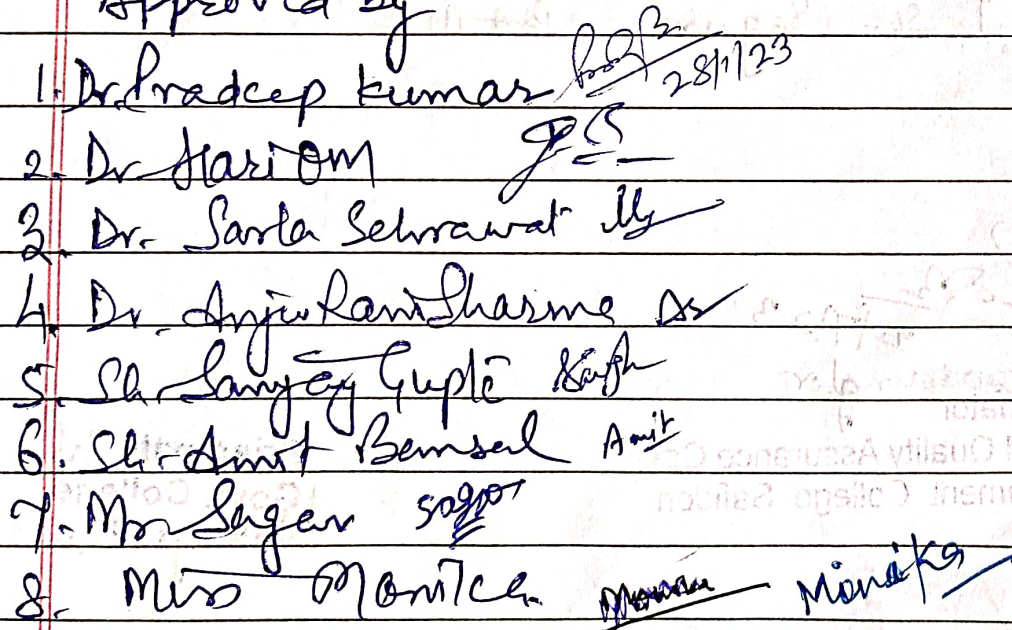 Approved by
1. Dr. Pradeep kumar 28/1/23
2. Dr Hari OM
3. Dr. Sarla Sehrawat
4. Dr. Anju Rani Sharma As
5. Sh. Sanjay Gupta
6. Sh. Amit Bansal Amit
7. Mr Sagar Sagar
8. Miss Monika Monika